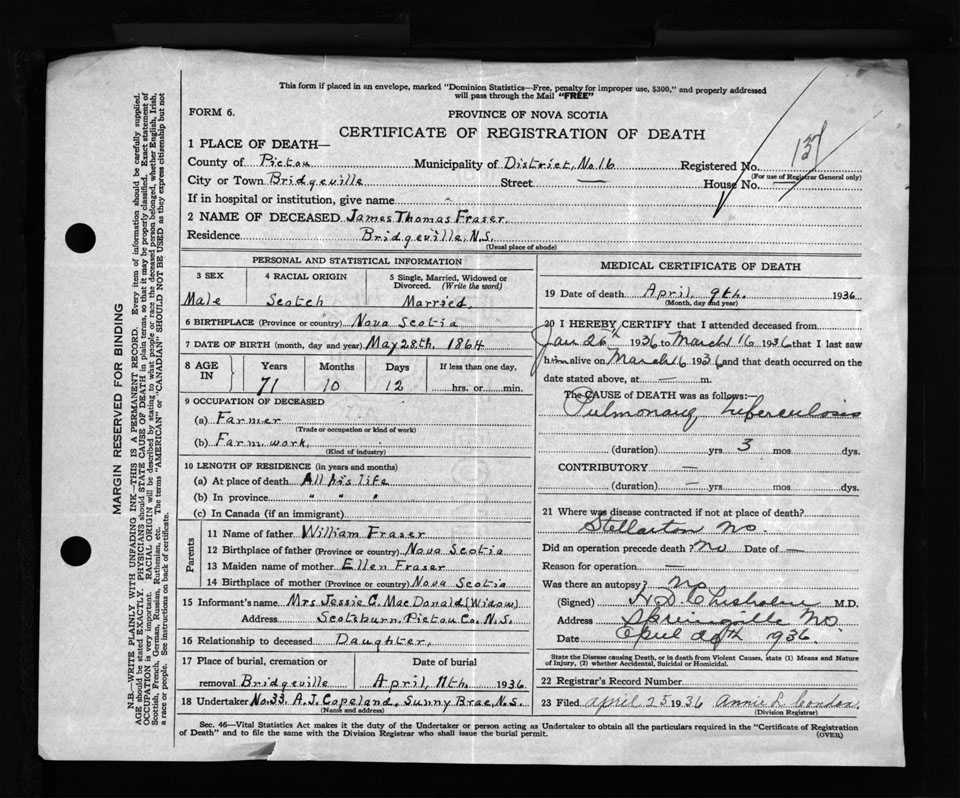 This form if placed in an envelope, marked "Dominion Statistics—Free, penalty for improper use, $300," and properly addressed
will pass through the Mail "FREE"
FORM 6.
PROVINCE OF NOVA SCOTIA
CERTIFICATE OF REGISTRATION OF DEATH
137
1 PLACE OF DEATH—
County of Pictou Municipality of District, No 16 Registered No.
(For use of Registrar General only)
City or Town Bridgeville Street — House No. —
If in hospital or institution, give name -
2 NAME OF DECEASED James Thomas Fraser
Residence Bridgeville, N.S.
(Usual place of abode)
PERSONAL AND STATISTICAL INFORMATION
3 SEX 4 RACIAL ORIGIN 5 Single, Married, Widowed or
Divorced. (Write the word)
Male Scotch Married,
6 BIRTHPLACE (Province or country) Nova Scotia
7 DATE OF BIRTH (month, day and year) May 28th, 1864
8 AGE IN Years Months Days If less than one day,
71 10 12 hrs. or min.
9 OCCUPATION OF DECEASED
(a) Farmer
(Trade or occupation or kind of work)
(b) Farm work,
(Kind of industry)
10 LENGTH OF RESIDENCE (in years and months)
(a) At place of death All his life
(b) In province " " "
(c) In Canada (if an immigrant)
Parents
11 Name of father William Fraser
12 Birthplace of father (Province or country) Nova Scotia
13 Maiden name of mother Ellen Fraser
14 Birthplace of mother (Province or country) Nova Scotia
15 Informant's name Mrs Jessie C. MacDonald (Widow)
Address Scotsburn, Pictou Co. N.S.
16 Relationship to deceased Daughter,
17 Place of burial, cremation or Date of burial
removal Bridgeville April, 11th. 1936
18 Undertaker No. 33, A. J. Copeland, Sunny Brae, N.S.
(Name and address)
MEDICAL CERTIFICATE OF DEATH
19 Date of death April, 9th. 1936
(Month, day and year)
20 I HEREBY CERTIFY that I attended deceased from
Jan 26th 1936 to March 16 1936 that I last saw
him alive on March 16 1936 and that death occurred on the
date stated above, at — m.
The CAUSE of DEATH was as follows:—
Pulmonary tuberculosis
(duration) yrs. 3 mos. dys.
CONTRIBUTORY —
(duration) — yrs. mos. dys.
21 Where was disease contracted if not at place of death?
Stellarton NS.
Did an operation precede death? No Date of —
Reason for operation —
Was there an autopsy? No
(Signed) H. D. Chisholm M.D.
Address Springville NS.
Date April 20th 1936.
State the Disease causing Death, or in death from Violent Causes, state (1) Means and Nature
of Injury, (2) whether Accidental, Suicidal or Homicidal.
22 Registrar's Record Number
23 Filed April 25 1936 Annie L. Condon,
(Division Registrar)
Sec. 46—Vital Statistics Act makes it the duty of the Undertaker or person acting as Undertaker to obtain all the particulars required in the "Certificate of Registration
of Death" and to file the same with the Division Registrar who shall issue the burial permit.
(OVER)
MARGIN RESERVED FOR BINDING
N.B.—WRITE PLAINLY WITH UNFADING INK—THIS IS A PERMANENT RECORD. Every item of information should be carefully supplied.
AGE should be stated EXACTLY. PHYSICIANS should STATE CAUSE OF DEATH in plain terms, so that it may be properly classified. Exact statement of
OCCUPATION is very important. RACIAL ORIGIN will be described by stating to what people or race the deceased person belonged, whether English, Irish,
Scottish, French, German, Russian, Ruthenian, etc. The terms "AMERICAN" or "CANADIAN" SHOULD NOT BE USED as they express citizenship but not
a race or people. See instructions on back of certificate.